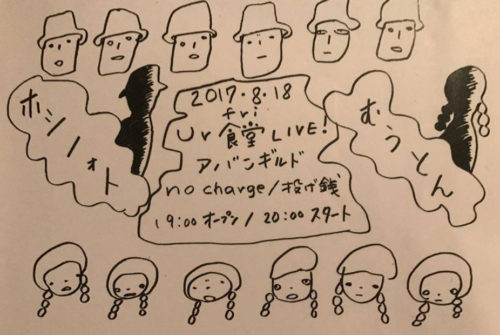 ホシノォト
2017.8.18
fri
Ur食堂 LIVE!
アバンギルド
no charge/投げ銭
19:00 オープン/20:00 スタート
むうとん